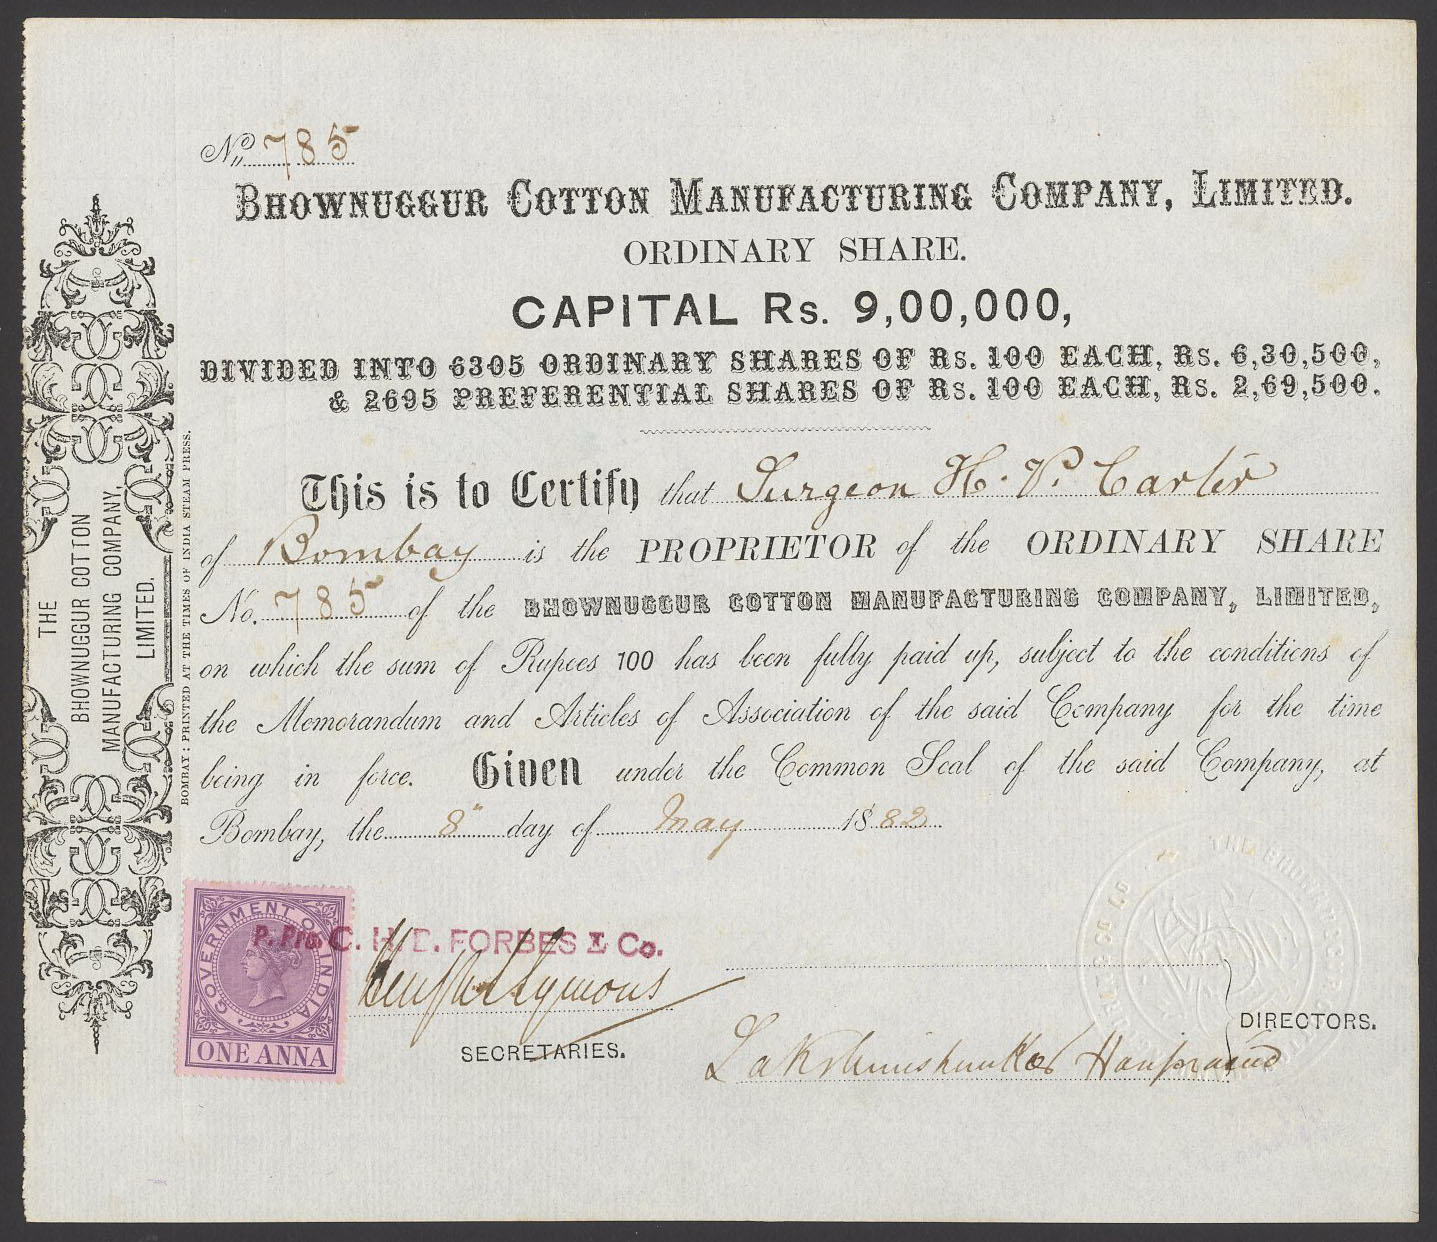 No. 785
BHOWNUGGUR COTTON MANUFACTURING COMPANY, LIMITED.
ORDINARY SHARE.
CAPITAL Rs. 9,00,000,
DIVIDED INTO 6305 ORDINARY SHARES OF Rs. 100 EACH, Rs. 6,30,500,
& 2695 PREFERENTIAL SHARES OF Rs. 100 EACH, Rs. 2,69,500.
This is to Certify that Surgeon H. V. Carter
of Bombay is the PROPRIETOR of the ORDINARY SHARE
No. 785 of the BHOWNUGGUR COTTON MANUFACTURING COMPANY, LIMITED,
on which the sum of Rupees 100 has been fully paid up, subject to the conditions of
the Memorandum and Articles of Association of the said Company for the time
being in force. Given under the Common Seal of the said Company, at
Bombay, the 8" day of May 1882
P. Pro C. H. B. FORBES & Co.
SECRETARIES.
DIRECTORS.
GOVERNMENT OF INDIA
ONE ANNA
THE
BHOWNUGGUR COTTON
MANUFACTURING COMPANY,
LIMITED.
BOMBAY: PRINTED AT THE TIMES OF INDIA STEAM PRESS.